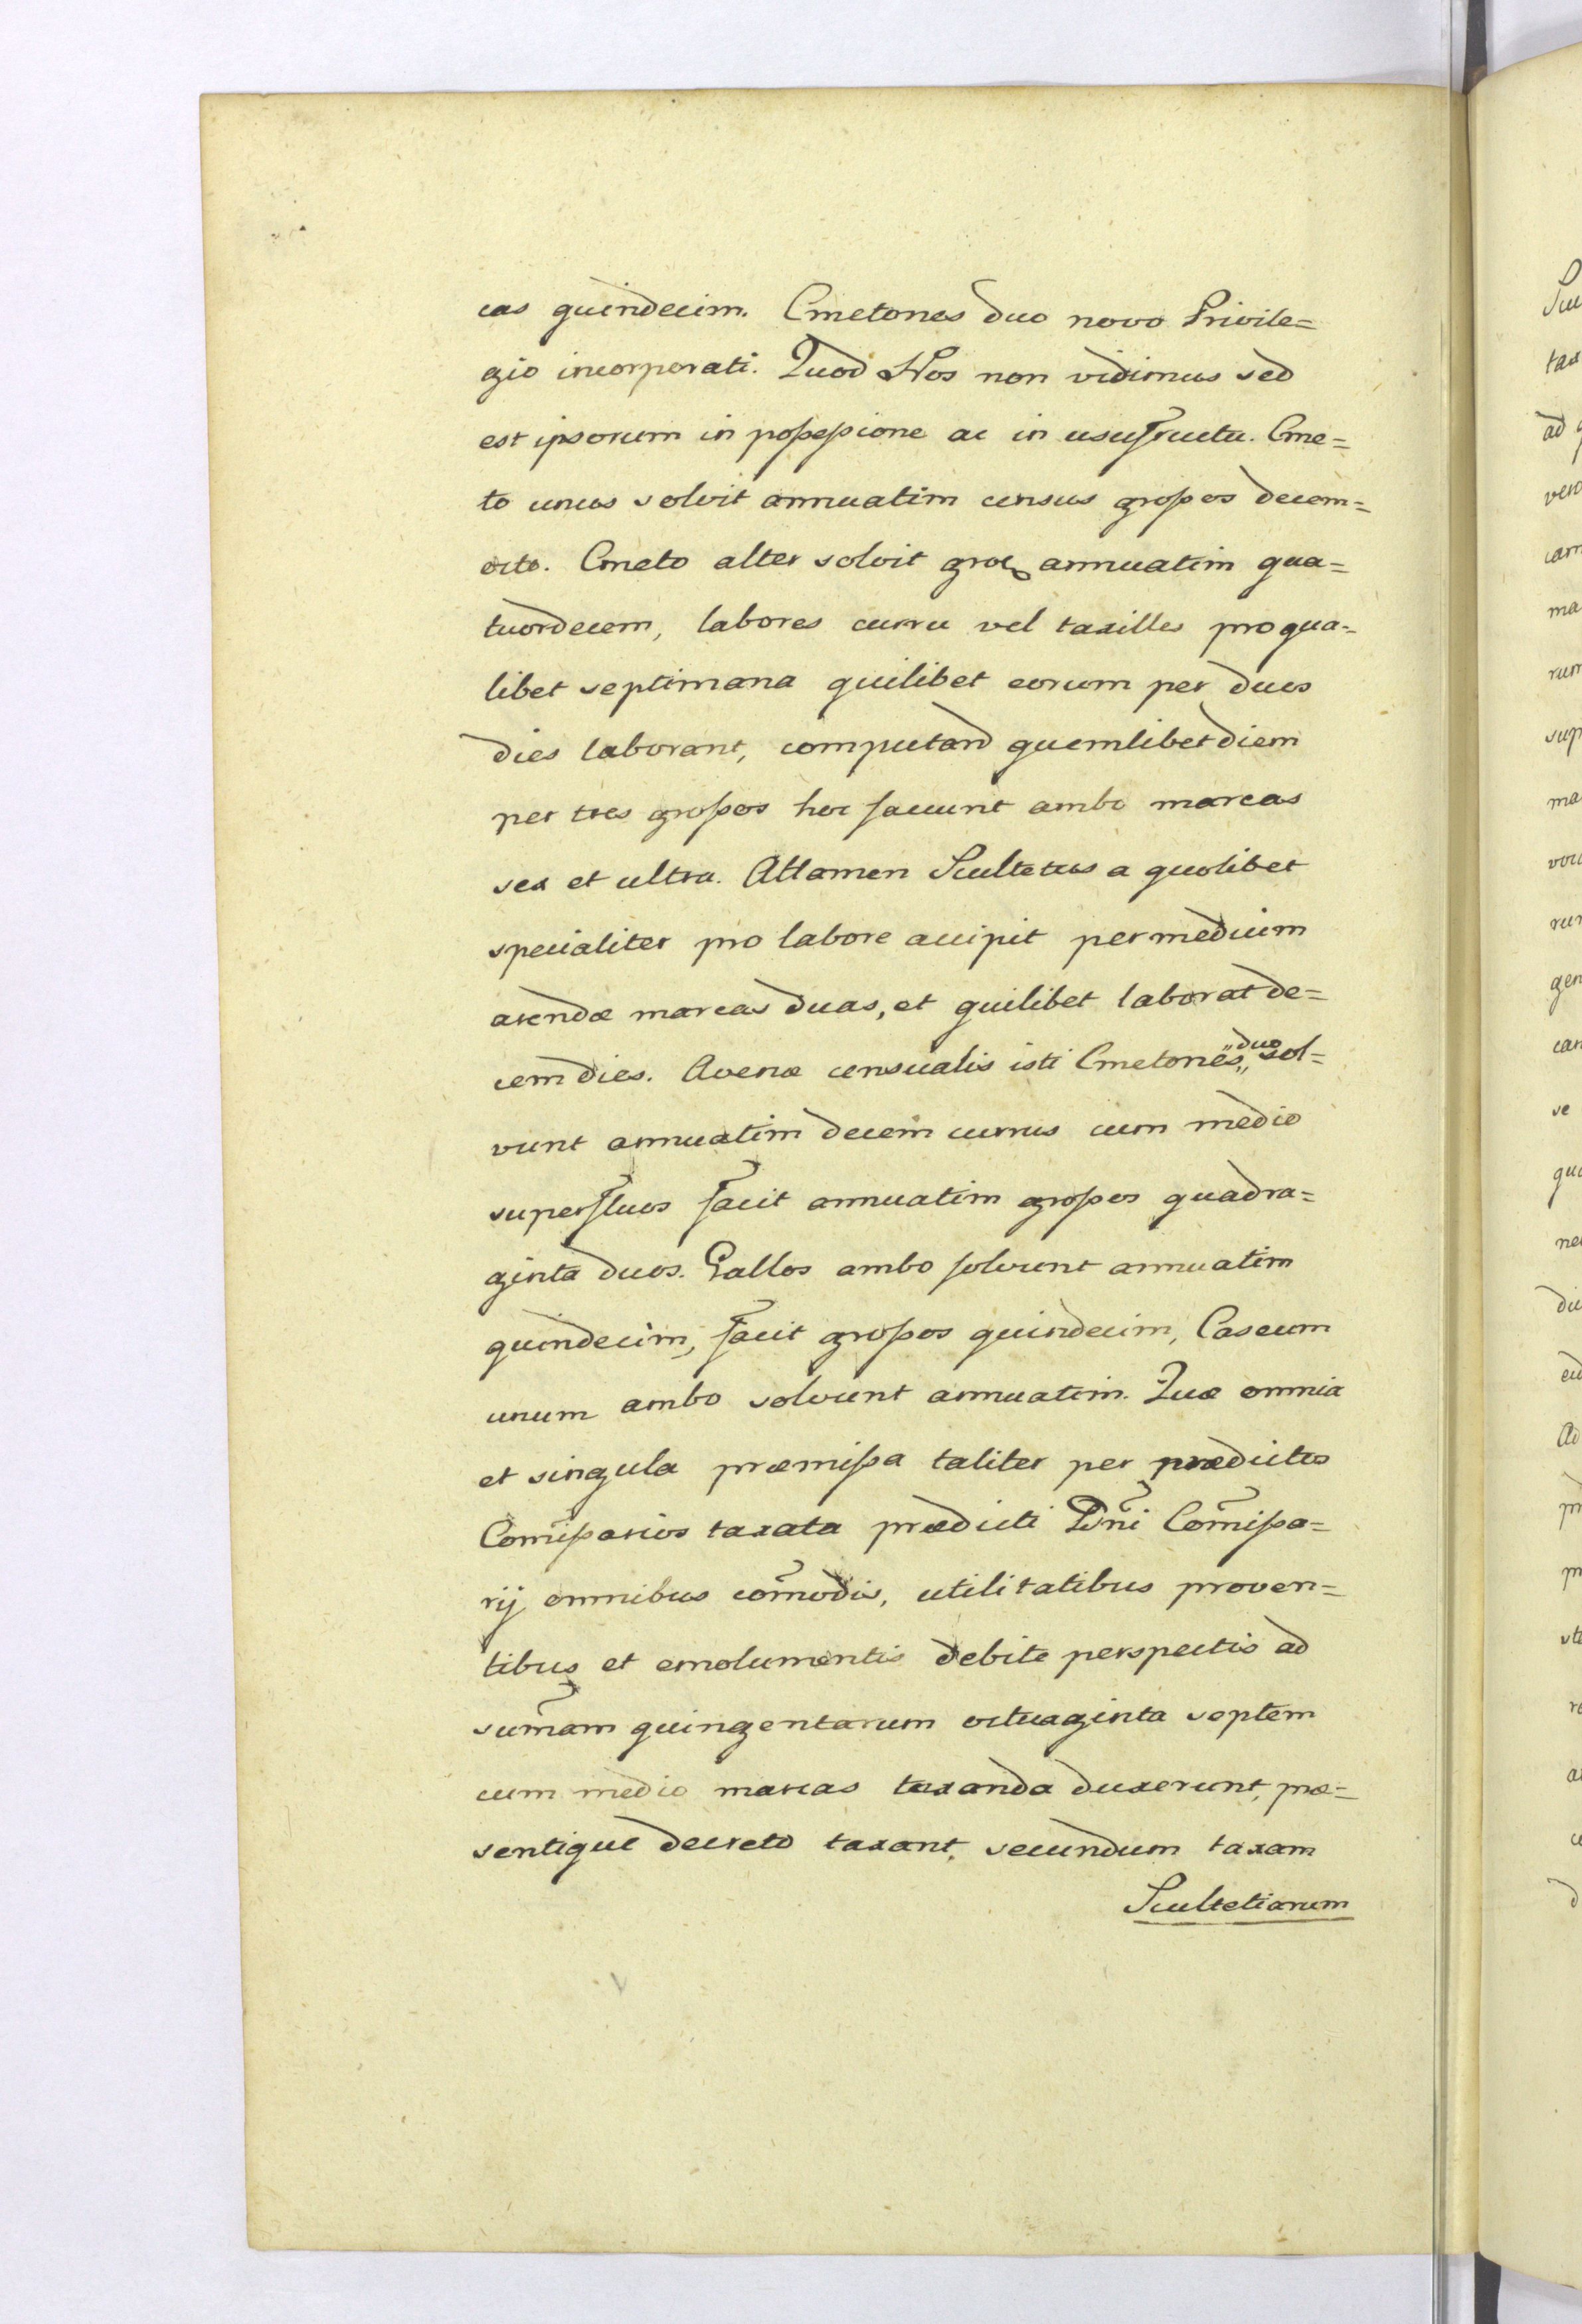 cas quindecim. Cmetones duo novo Privile=
gio incorporati. Quod Nos non vidimus sed
est ipsorum in poſseſsione ac in usufructu. Cme=
to unus solvit annuatim census groſsos decem=
octo. Cmeto alter solvit groſ annuatim qua=
tuordecem, labores curru vel taxilles pro qua=
libet septimana quilibet eorum per duos
dies laborant, computand quemlibet diem
per tres groſsos hoc faciunt ambo marcas
sex et ultra. Attamen Scultetus a quolibet
specialiter pro labore accipit per medium
arendæ marcas duas, et quilibet laborat de=
cem dies. Avenæ censualis isti Cmetones „duo„ sol=
vunt annuatim decem currus cum medio
superfluos facit annuatim groſsos quadra=
ginta duos. Gallos ambo solvunt annuatim
quindecim, facit groſsos quindecim, Caseum
unum ambo solvunt annuatim. Quæ omnia
et singula præmiſsa taliter per prædictos
Com̃iſsarios taxata prædicti Dn̄i Com̃iſsa=
rij omnibus com̃odis, utilitatibus proven=
tibus et emolumentis debite perspectis ad
sum̃am quingentarum octuaginta septem
cum medio marcas taxanda duxerunt, præ=
sentique decreto taxant, secundum taxam
Scultetiarum